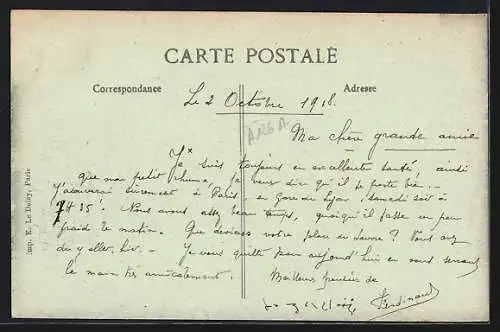 CARTE POSTALE
Correspondance
Adresse
Le 2 Octobre 1918.
Ma chère grande amie
Je suis toujours en excellente santé, ainsi
que mon petit rhume, je veux dire qu'il se porte bien. -
J'arriverai sûrement à Paris en Gare de Lyon, samedi soir à
7h 35'. Nous avons assez beau temps, quoiqu'il fasse un peu
froid le matin. Que devient votre plaie du Louvre ? Vous avez
dû y aller hier. - Je vous quitte pour aujourd'hui en vous serrant
la main très amicalement.
Meilleures pensées de
Ferdinand
Imp. E. Le Deley, Paris